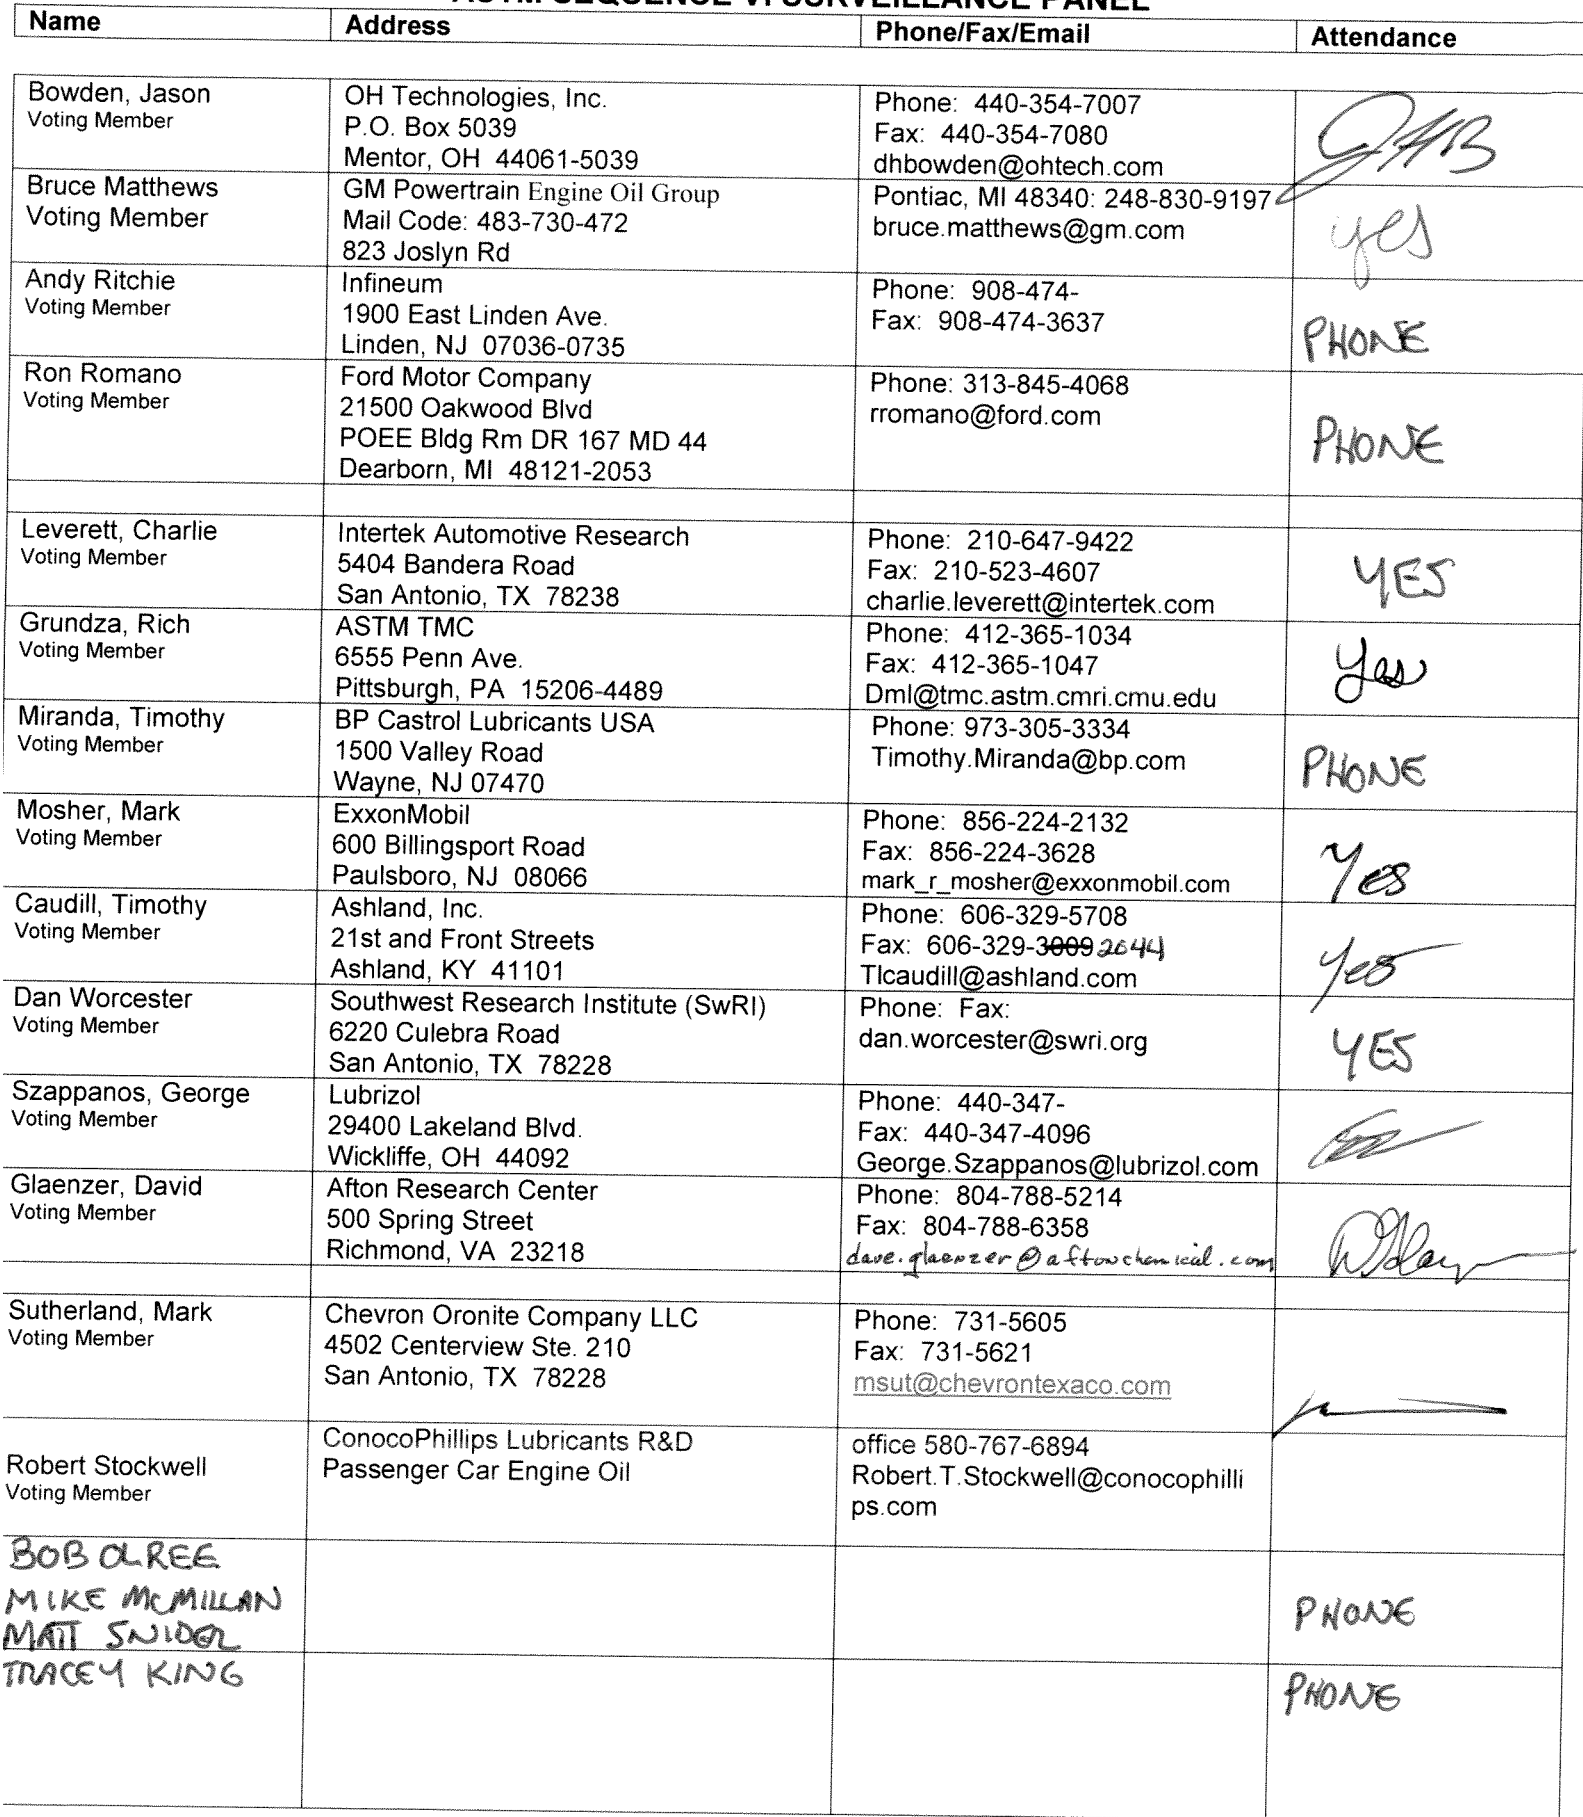 ASTM SEQUENCE VI SURVEILLANCE PANEL
Name Address Phone/Fax/Email Attendance
Bowden, Jason
Voting Member
OH Technologies, Inc.
P.O. Box 5039
Mentor, OH 44061-5039
Phone: 440-354-7007
Fax: 440-354-7080
dhbowden@ohtech.com
JHB
Bruce Matthews
Voting Member
GM Powertrain Engine Oil Group
Mail Code: 483-730-472
823 Joslyn Rd
Pontiac, MI 48340: 248-830-9197
bruce.matthews@gm.com
yes
Andy Ritchie
Voting Member
Infineum
1900 East Linden Ave.
Linden, NJ 07036-0735
Phone: 908-474-
Fax: 908-474-3637
PHONE
Ron Romano
Voting Member
Ford Motor Company
21500 Oakwood Blvd
POEE Bldg Rm DR 167 MD 44
Dearborn, MI 48121-2053
Phone: 313-845-4068
rromano@ford.com
PHONE
Leverett, Charlie
Voting Member
Intertek Automotive Research
5404 Bandera Road
San Antonio, TX 78238
Phone: 210-647-9422
Fax: 210-523-4607
charlie.leverett@intertek.com
YES
Grundza, Rich
Voting Member
ASTM TMC
6555 Penn Ave.
Pittsburgh, PA 15206-4489
Phone: 412-365-1034
Fax: 412-365-1047
Dml@tmc.astm.cmri.cmu.edu
Yes
Miranda, Timothy
Voting Member
BP Castrol Lubricants USA
1500 Valley Road
Wayne, NJ 07470
Phone: 973-305-3334
Timothy.Miranda@bp.com
PHONE
Mosher, Mark
Voting Member
ExxonMobil
600 Billingsport Road
Paulsboro, NJ 08066
Phone: 856-224-2132
Fax: 856-224-3628
mark_r_mosher@exxonmobil.com
Yes
Caudill, Timothy
Voting Member
Ashland, Inc.
21st and Front Streets
Ashland, KY 41101
Phone: 606-329-5708
Fax: 606-329-3009 2044
Tlcaudill@ashland.com
Yes
Dan Worcester
Voting Member
Southwest Research Institute (SwRI)
6220 Culebra Road
San Antonio, TX 78228
Phone: Fax:
dan.worcester@swri.org
YES
Szappanos, George
Voting Member
Lubrizol
29400 Lakeland Blvd.
Wickliffe, OH 44092
Phone: 440-347-
Fax: 440-347-4096
George.Szappanos@lubrizol.com
Glaenzer, David
Voting Member
Afton Research Center
500 Spring Street
Richmond, VA 23218
Phone: 804-788-5214
Fax: 804-788-6358
dave.glaenzer@aftonchemical.com
Sutherland, Mark
Voting Member
Chevron Oronite Company LLC
4502 Centerview Ste. 210
San Antonio, TX 78228
Phone: 731-5605
Fax: 731-5621
msut@chevrontexaco.com
Robert Stockwell
Voting Member
ConocoPhillips Lubricants R&D
Passenger Car Engine Oil
office 580-767-6894
Robert.T.Stockwell@conocophilli
ps.com
BOB OLREE
MIKE MCMILLAN
MATT SNIDER
PHONE
TRACEY KING
PHONE